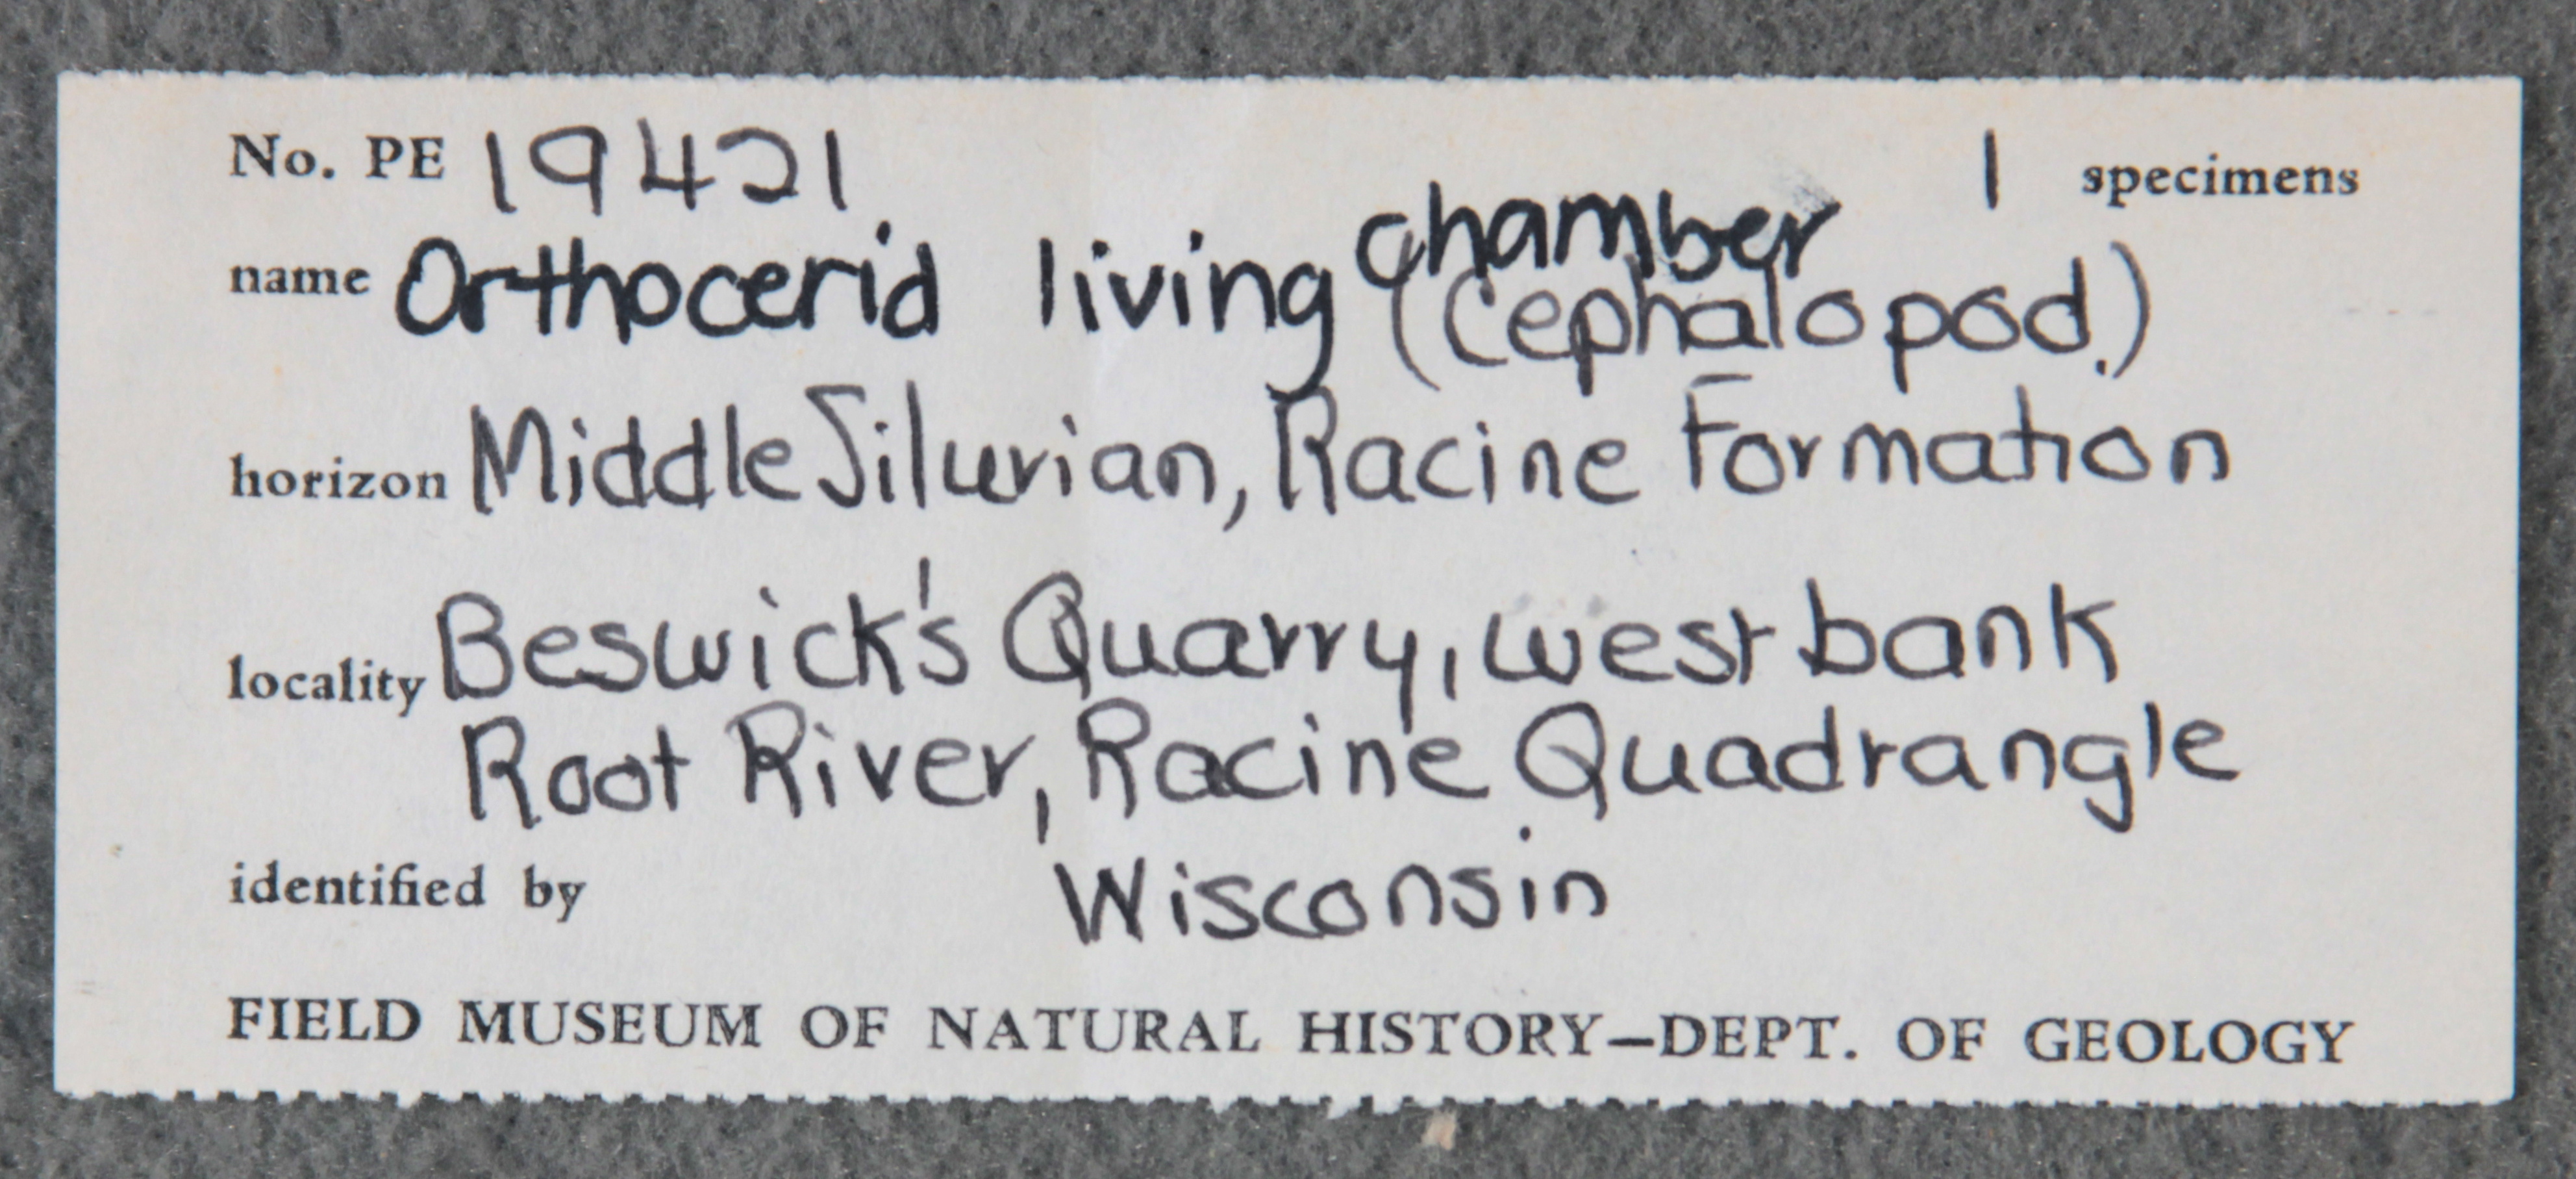 No. PE 19421 1 specimens
name Orthocerid living chamber
(Cephalopod.)
horizon Middle Silurian, Racine Formation
locality Beswick's Quarry, west bank
Root River, Racine Quadrangle
identified by Wisconsin
FIELD MUSEUM OF NATURAL HISTORY—DEPT. OF GEOLOGY